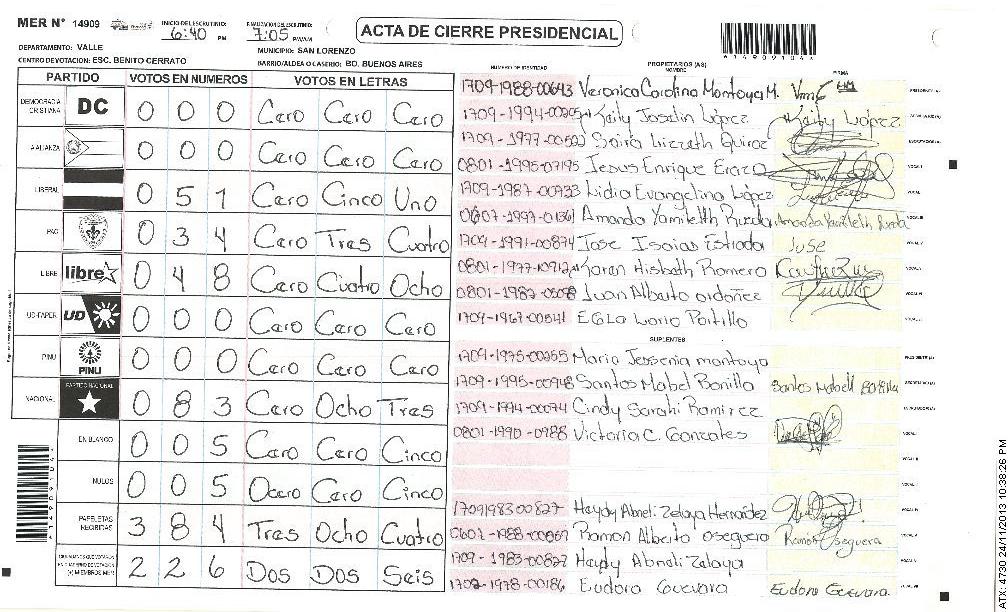 MER N° 14909
INICIO DE ESCRUTINIO: 6:40 PM
FINALIZACION DEL ESCRUTINIO: 7:05 PM/A/M
ACTA DE CIERRE PRESIDENCIAL
A14909104A
DEPARTAMENTO: VALLE
MUNICIPIO: SAN LORENZO
CENTRO DE VOTACION: ESC. BENITO CERRATO
BARRIO/ALDEA O CASERIO: BO. BUENOS AIRES
PARTIDO VOTOS EN NUMEROS VOTOS EN LETRAS
DEMOCRACIA CRISTIANA DC 0 0 0 Cero Cero Cero
ALIANZA 0 0 0 Cero Cero Cero
LIBERAL 0 5 1 Cero Cinco Uno
PAC 0 3 4 Cero Tres Cuatro
LIBRE libre 0 4 8 Cero Cuatro Ocho
UD-FAPER UD 0 0 0 Cero Cero Cero
PINU PINU 0 0 0 Cero Cero Cero
NACIONAL PARTIDO NACIONAL 0 8 3 Cero Ocho Tres
EN BLANCO 0 0 5 Cero Cero Cinco
NULOS 0 0 5 Cero Cinco
PAPELETAS RECIBIDAS 3 8 4 Tres Ocho Cuatro
CIUDADANOS QUE VOTARON (+) MIEMBROS MER 2 2 6 Dos Dos Seis
NUMERO DE IDENTIDAD PROPIETARIOS (AS) NOMBRE FIRMA
1709-1988-00643 Veronica Carolina Montoya M. PRESIDENTE (A)
1709-1994-00205 Keily Joselin López Keily López SECRETARIO (A)
1709-1977-00502 Saira Lizzeth Quiroz ESCRUTADOR (A)
0801-1995-07195 Jesus Enrique Erazo VOCAL I
1709-1987-00733 Lidia Evangelina López VOCAL
0607-1997-01361 Amanda Yamileth Rueda Amanda Yamileth Rueda VOCAL III
1709-1991-00874 Jose Isaias Estrada Jose VOCAL
0801-1977-10912 Karen Hisbeth Romero VOCAL
0801-1982-05098 Juan Alberto ordoñez VOCAL
1709-1967-00541 Egla Portillo VOCAL
SUPLENTES
1709-1975-00255 Maria Jessenia montoya PRESIDENTE (A)
1709-1995-00948 Santos Mabel Bonilla Santos Mabell Bonilla SECRETARIO (A)
1709-1994-00074 Cindy Sarahi Ramirez ESCRUTADOR (A)
0801-1990-0988 Victoria C. Gonzales VOCAL I
VOCAL II
VOCAL
1709198300827 Haydy Abneli Zelaya Hernández VOCAL IV
0607-1988-00867 Ramon Alberto oseguera Ramon Oseguera VOCAL
1709-1983-00827 Haydy Abneli Zelaya
1709-1978-00186 Eudora Guevara Eudora Guevara VOCAL VII
A14909104A
ATX: 4730 24/11/2013 10:38:26 PM